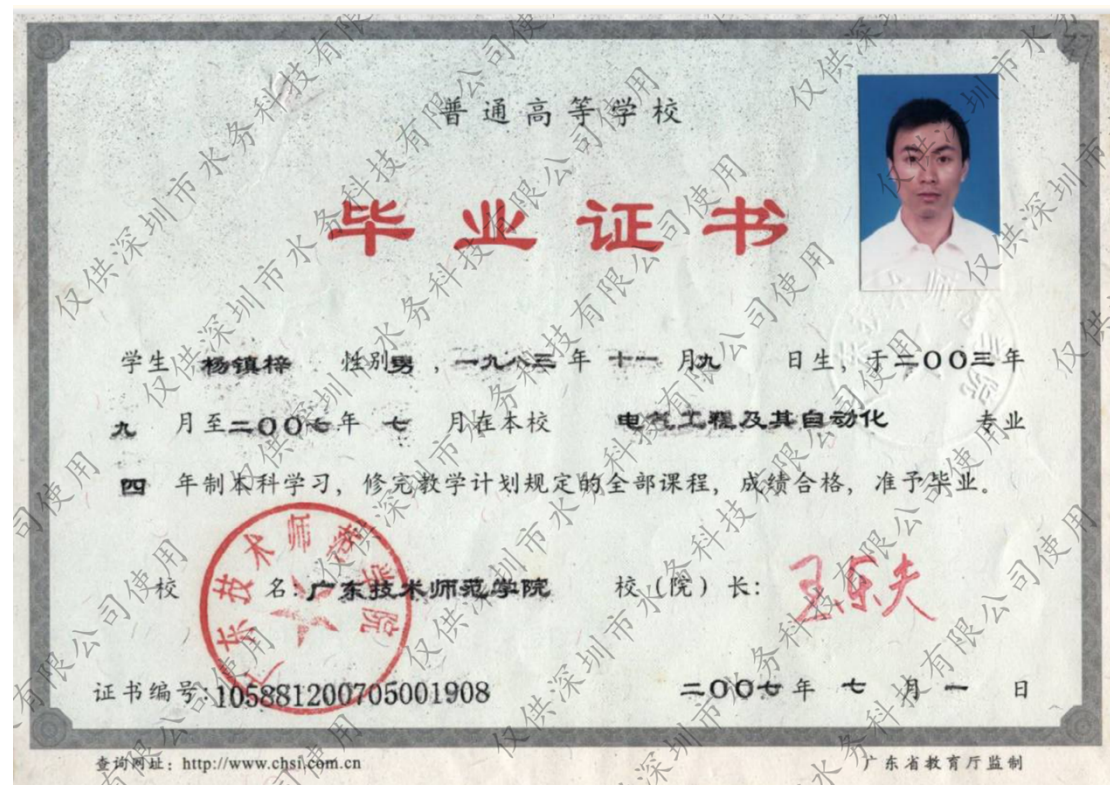 普通高等学校
毕业证书
学生 杨镇梓 性别男，一九八三年 十一 月九 日生，于二〇〇三年
九 月至二〇〇七年 七 月在本校 电气工程及其自动化 专业
四 年制本科学习，修完教学计划规定的全部课程，成绩合格，准予毕业。
校 名:广东技术师范学院 校（院）长:
广东技术师范学院
证书编号:105881200705001908 二〇〇七年 七 月 一 日
查询网址：http://www.chsi.com.cn 广东省教育厅监制
仅供深圳市水务科技有限公司使用